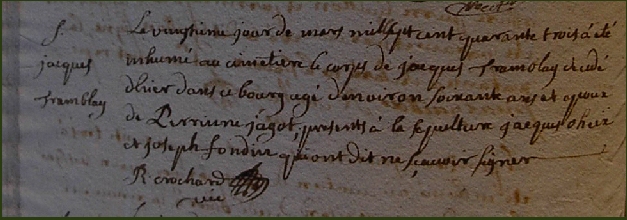 S.
jacques
Tramblay
Le vingtieme jour de mars mil sept cent quarante trois a été
inhumé au cimetiere le corps de jacques Tramblay decedé
d'hier dans ce bourg agé d'environ soixante ans et epoux
de Perrinne jagot, presents à la sepulture jacques
et joseph qui ont dit ne sçavoir signer
R crochard